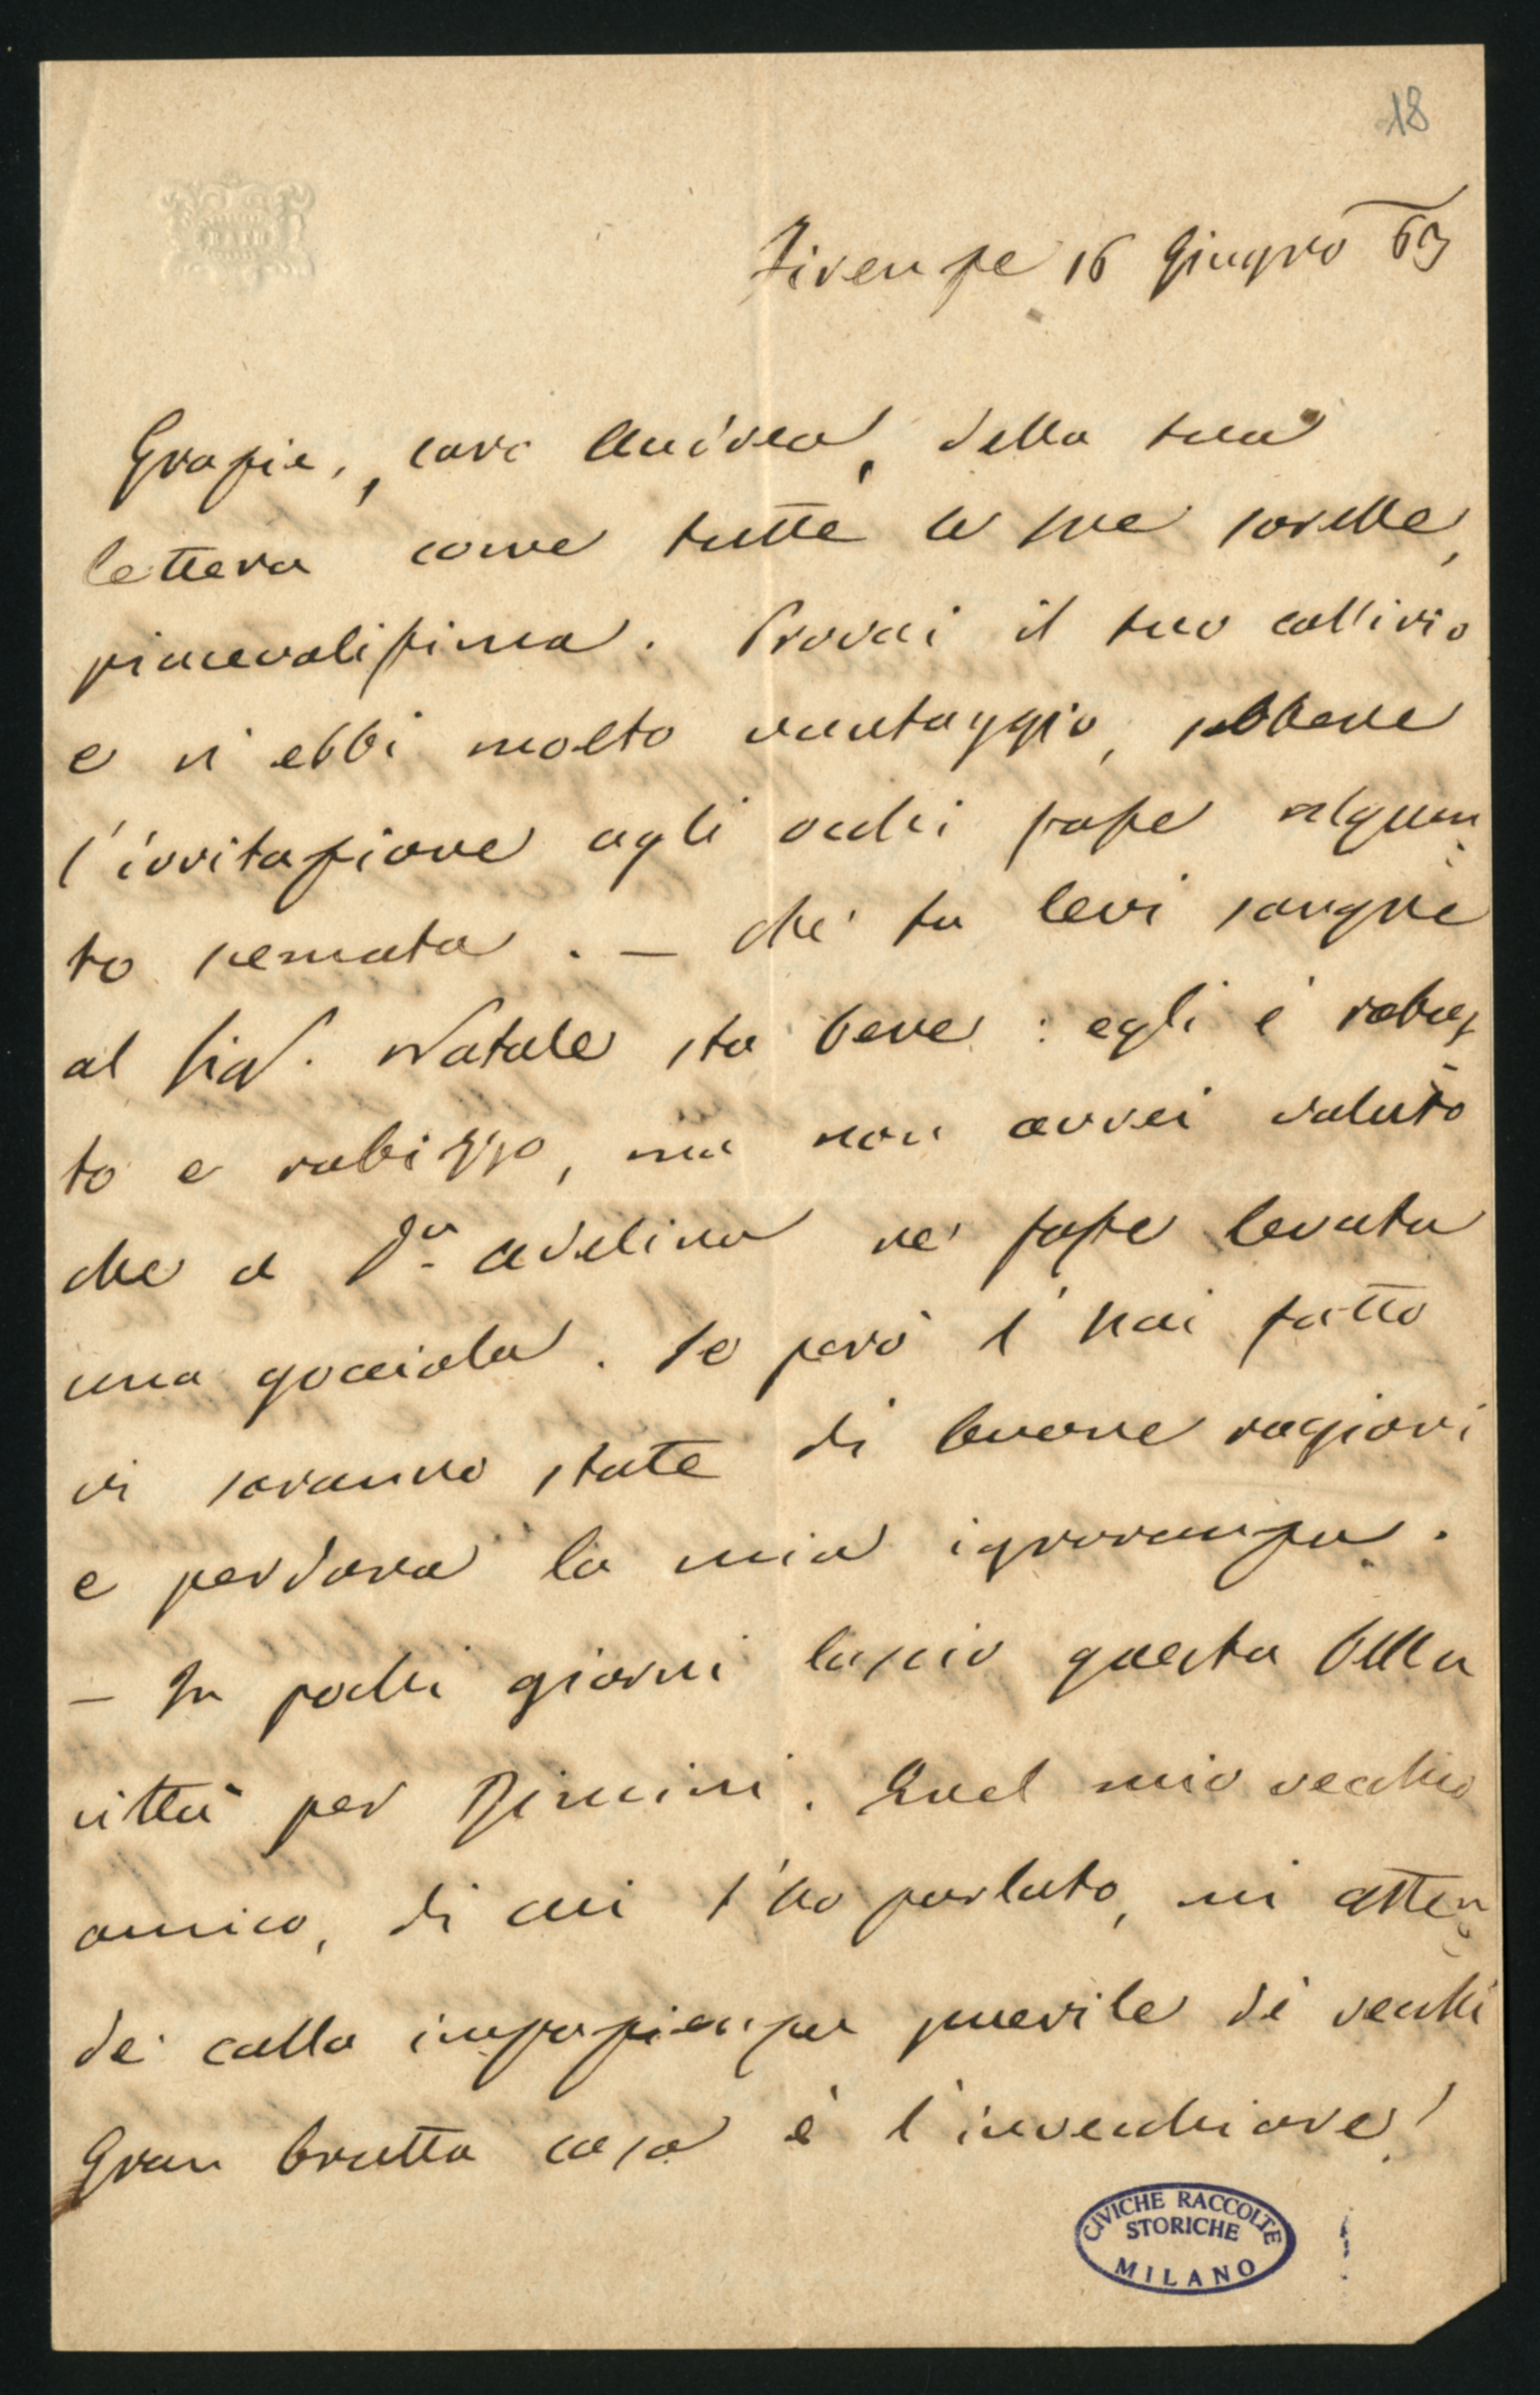 18
Firenze 16 Giugno 69
Grazie, caro Andrea, della tua
lettera come tutte le sue sorelle,
piacevolissima. Provai il tuo collirio
e vi ebbi molto vantaggio, sebbene
l'irritazione agli occhi fosse alquan-
to scemata. — Che tu levi sangue
al Sigr. Natale sta bene: egli è robus-
to e rubizzo, ma non avrei voluto
che a Da. Adelina ne fosse levata
una gocciola. Se però l'hai fatto
vi saranno state di buone ragioni
e perdona la mia ignoranza.
— In pochi giorni lascio questa bella
città per Rimini. Quel mio vecchio
amico, di cui t'ho parlato, mi atten-
de colla impazienza puerile di vecchi
Gran brutta cosa è l'invecchiare!
CIVICHE RACCOLTE
STORICHE
MILANO